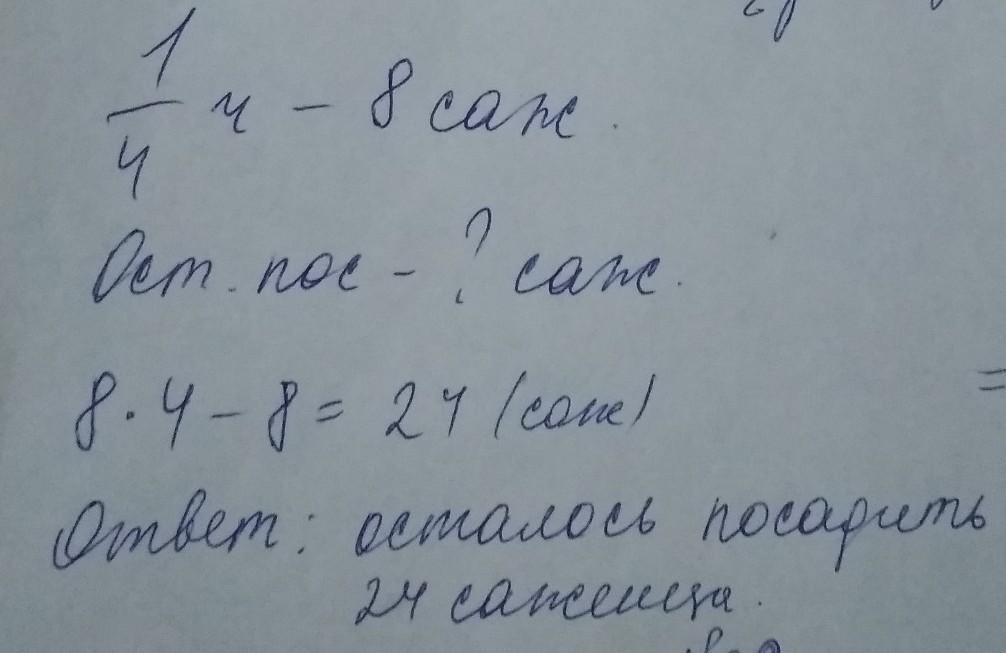 1/4 ч - 8 саж.
Ост. пос - ? саж.
8 · 4 - 8 = 24 (саж)
Ответ: осталось посадить
24 саженца.